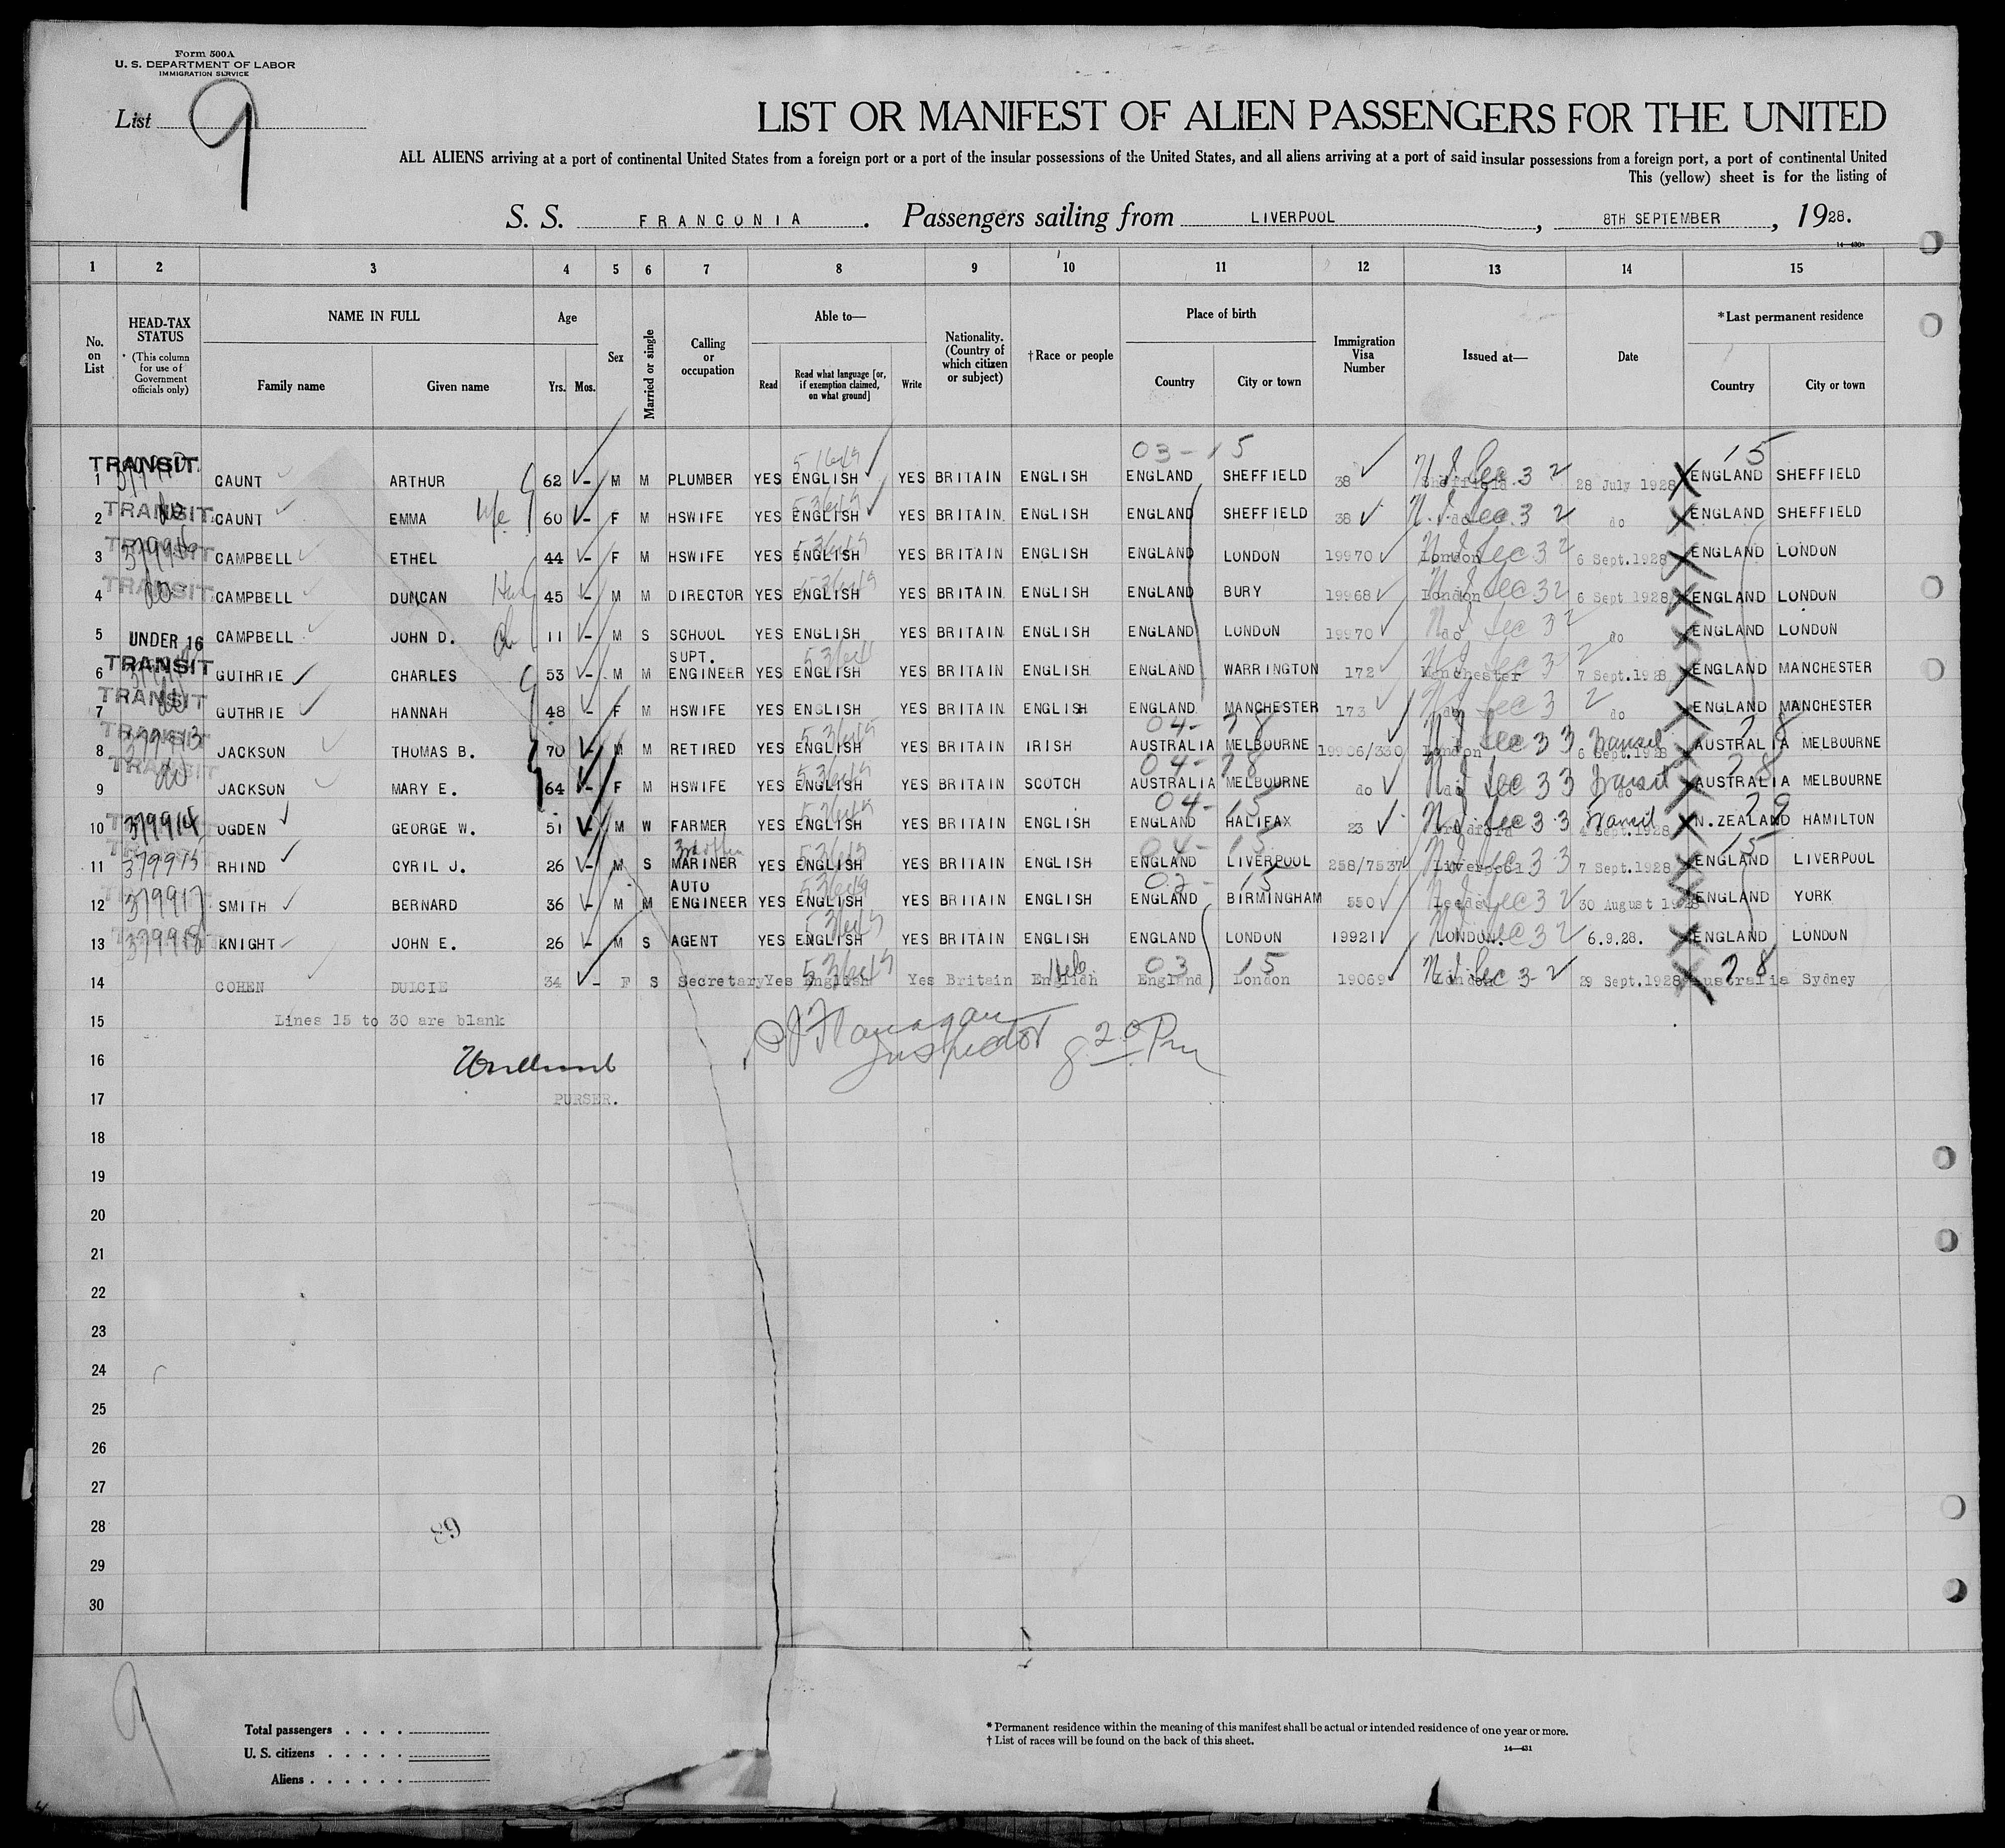 Form 500A
U. S. DEPARTMENT OF LABOR
IMMIGRATION SERVICE
List 9
LIST OR MANIFEST OF ALIEN PASSENGERS FOR THE UNITED
ALL ALIENS arriving at a port of continental United States from a foreign port or a port of the insular possessions of the United States, and all aliens arriving at a port of said insular possessions from a foreign port, a port of continental United
This (yellow) sheet is for the listing of
S. S. FRANCONIA. Passengers sailing from LIVERPOOL, 8TH SEPTEMBER, 1928.
14—430a
1 2 3 4 5 6 7 8 9 10 11 12 13 14 15
No. on List
HEAD-TAX STATUS (This column for use of Government officials only)
NAME IN FULL Family name Given name
Age Yrs. Mos.
Sex
Married or single
Calling or occupation
Able to— Read Read what language [or, if exemption claimed, on what ground] Write
Nationality. (Country of which citizen or subject)
†Race or people
Place of birth Country City or town
Immigration Visa Number
Issued at—
Date
*Last permanent residence Country City or town
03-15 15
1 TRANSIT CAUNT ARTHUR 62 - M M PLUMBER YES ENGLISH YES BRITAIN ENGLISH ENGLAND SHEFFIELD 38 Sheffield. 28 July 1928 ENGLAND SHEFFIELD
2 TRANSIT do CAUNT EMMA 60 - F M HSWIFE YES ENGLISH YES BRITAIN ENGLISH ENGLAND SHEFFIELD 38 do do ENGLAND SHEFFIELD
3 TRANSIT 379916 CAMPBELL ETHEL 44 - F M HSWIFE YES ENGLISH YES BRITAIN ENGLISH ENGLAND LONDON 19970 London 6 Sept.1928 ENGLAND LONDON
4 TRANSIT do CAMPBELL DUNCAN 45 - M M DIRECTOR YES ENGLISH YES BRITAIN ENGLISH ENGLAND BURY 19968 London 6 Sept 1928 ENGLAND LONDON
5 UNDER 16 CAMPBELL JOHN D. 11 - M S SCHOOL YES ENGLISH YES BRITAIN ENGLISH ENGLAND LONDON 19970 do do ENGLAND LONDON
6 TRANSIT GUTHRIE CHARLES 53 - M M SUPT. ENGINEER YES ENGLISH YES BRITAIN ENGLISH ENGLAND WARRINGTON 172 Manchester 7 Sept.1928 ENGLAND MANCHESTER
7 TRANSIT do GUTHRIE HANNAH 48 - F M HSWIFE YES ENGLISH YES BRITAIN ENGLISH ENGLAND MANCHESTER 173 do do ENGLAND MANCHESTER
04-28 28
8 TRANSIT 379913 JACKSON THOMAS B. 70 - M M RETIRED YES ENGLISH YES BRITAIN IRISH AUSTRALIA MELBOURNE 19906/330 London Transit 6 Sept.1928 AUSTRALIA MELBOURNE
04-28 28
9 TRANSIT do JACKSON MARY E. 64 - F M HSWIFE YES ENGLISH YES BRITAIN SCOTCH AUSTRALIA MELBOURNE do do Transit do AUSTRALIA MELBOURNE
04-15 28
10 379914 OGDEN GEORGE W. 51 - M W FARMER YES ENGLISH YES BRITAIN ENGLISH ENGLAND HALIFAX 23 Bradford Transit 4 Sept.1928 N.ZEALAND HAMILTON
04-15 15
11 379915 RHIND CYRIL J. 26 - M S MARINER YES ENGLISH YES BRITAIN ENGLISH ENGLAND LIVERPOOL 258/7537 Liverpool 7 Sept.1928 ENGLAND LIVERPOOL
03-15
12 379917 SMITH BERNARD 36 - M M AUTO ENGINEER YES ENGLISH YES BRITAIN ENGLISH ENGLAND BIRMINGHAM 550 Leeds 30 August 1928 ENGLAND YORK
13 379918 KNIGHT JOHN E. 26 - M S AGENT YES ENGLISH YES BRITAIN ENGLISH ENGLAND LONDON 19921 LONDON. 6.9.28. ENGLAND LONDON
03 15 28
14 COHEN DULCIE 34 - F S Secretary Yes English Yes Britain English England London 19069 London 29 Sept.1928 Australia Sydney
15 Lines 15 to 30 are blank
PJ Flanagan
Inspector 8 20 Pm
16
17 PURSER.
18
19
20
21
22
23
24
25
26
27
28
63
29
30
9
Total passengers
U. S. citizens
Aliens
* Permanent residence within the meaning of this manifest shall be actual or intended residence of one year or more.
† List of races will be found on the back of this sheet.
14—431